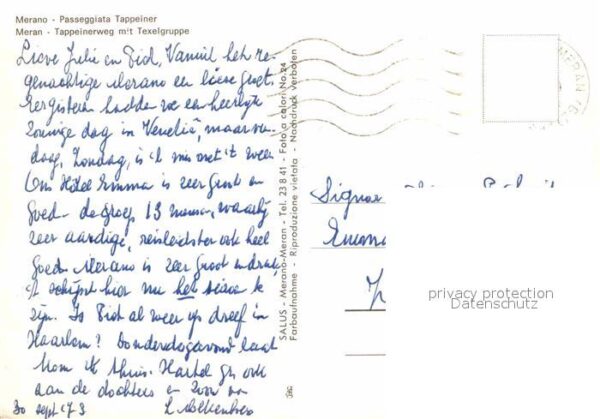 Merano - Passeggiata Tappeiner
Meran - Tappeinerweg mit Texelgruppe
Lieve Julie en Piet, Vanuit het re-
genachtige Merano een lieve groet.
Eergisteren hadden we een heerlijk
zonnige dag in Venetië, maar van-
daag, Zondag, is 't mis met 't weer
Ons Hotel Emma is zeer groot en
goed - de groep 13 mensen, waarbij
zeer aardige, reisleidster ook heel
goed. Merano is zeer groot en druk,
't schijnt hier nu het seizoen te
zijn. Is Piet al weer op dreef in
Haarlem? Donderdagavond laat
kom ik thuis. Hartel. gr. ook
aan de dochters en zoon van
30 sept 73
SALUS - Merano-Meran - Tel. 23 8 41 - Foto a colori No. 24
Farbaufnahme - Riproduzione vietata - Nachdruck verboten
MERAN
Signor
Emma
privacy protection
Datenschutz